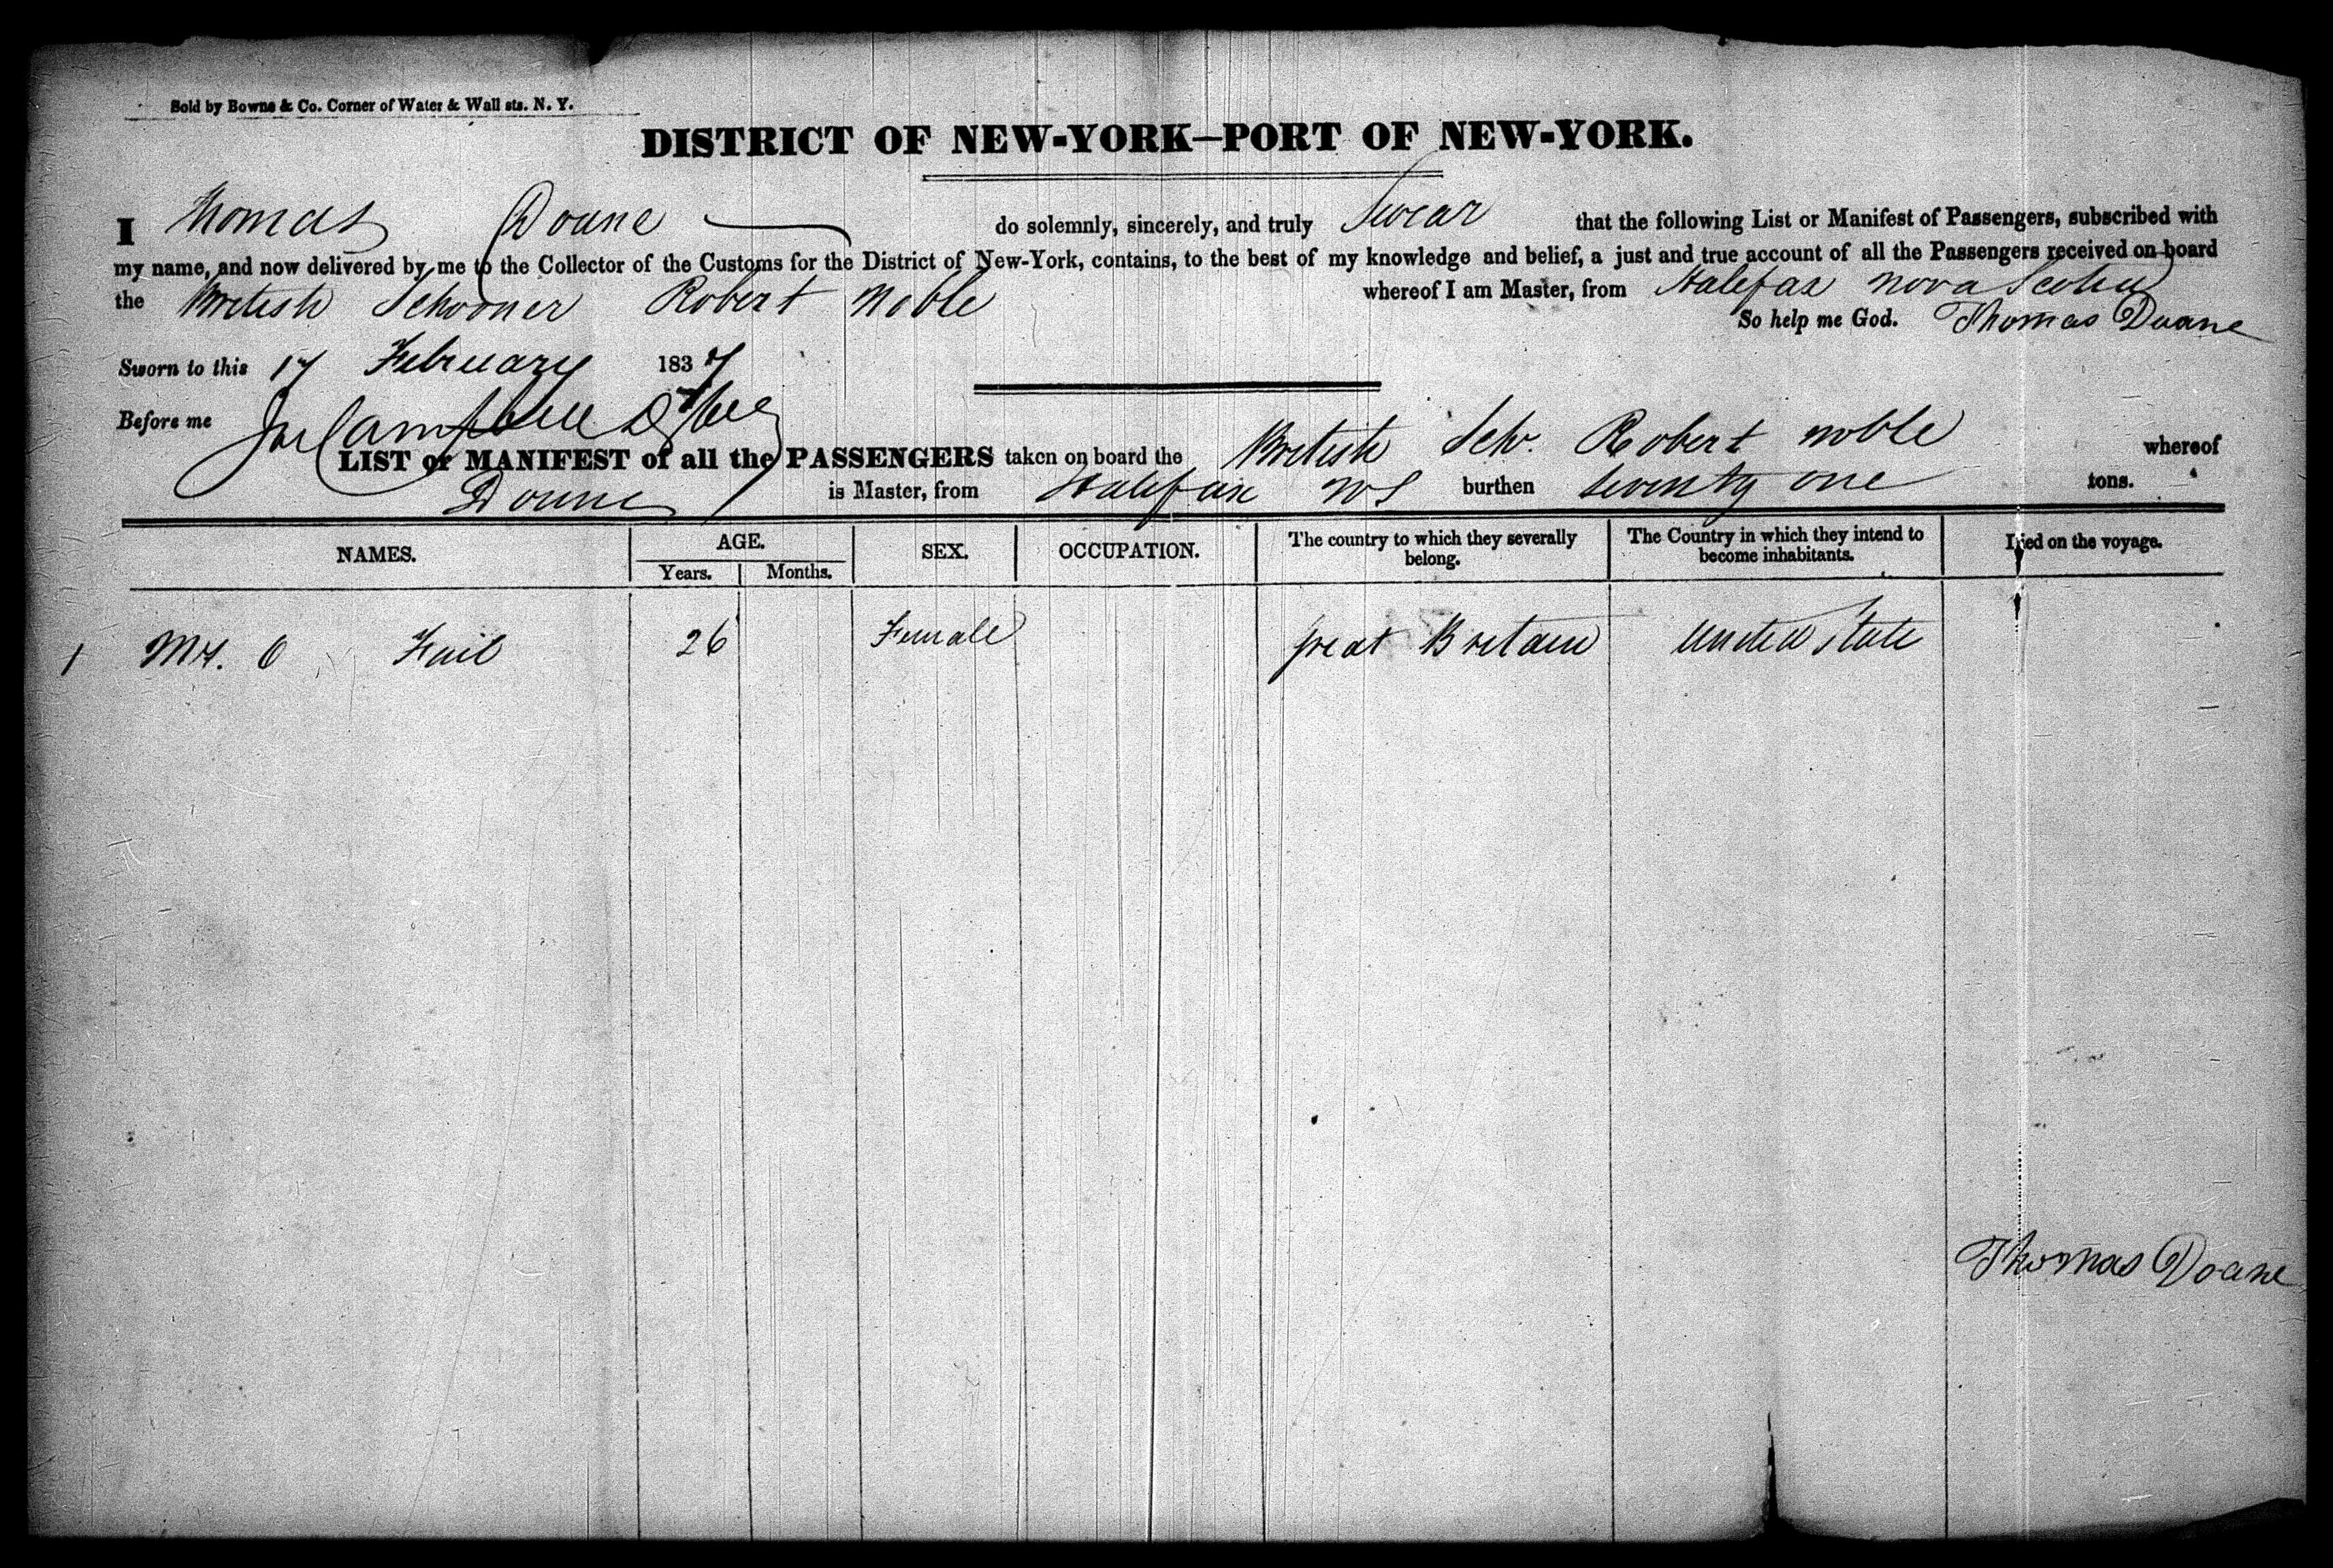 Sold by Bowne & Co. Corner of Water & Wall sts. N. Y.
DISTRICT OF NEW-YORK—PORT OF NEW-YORK.
I Thomas Doane do solemnly, sincerely, and truly Swear that the following List or Manifest of Passengers, subscribed with
my name, and now delivered by me to the Collector of the Customs for the District of New-York, contains, to the best of my knowledge and belief, a just and true account of all the Passengers received on board
the British Schooner Robert Noble whereof I am Master, from Halifax Nova Scotia
So help me God. Thomas Doane
Sworn to this 17 February 1837
Before me Campbell
LIST or MANIFEST of all the PASSENGERS taken on board the British Schr. Robert Noble whereof
Doane is Master, from Halifax NS burthen seventy one tons.
NAMES. AGE. SEX. OCCUPATION. The country to which they severally belong. The Country in which they intend to become inhabitants. Died on the voyage.
Years. Months.
1 Mrs. O 26 Female Great Britain United State
Thomas Doane